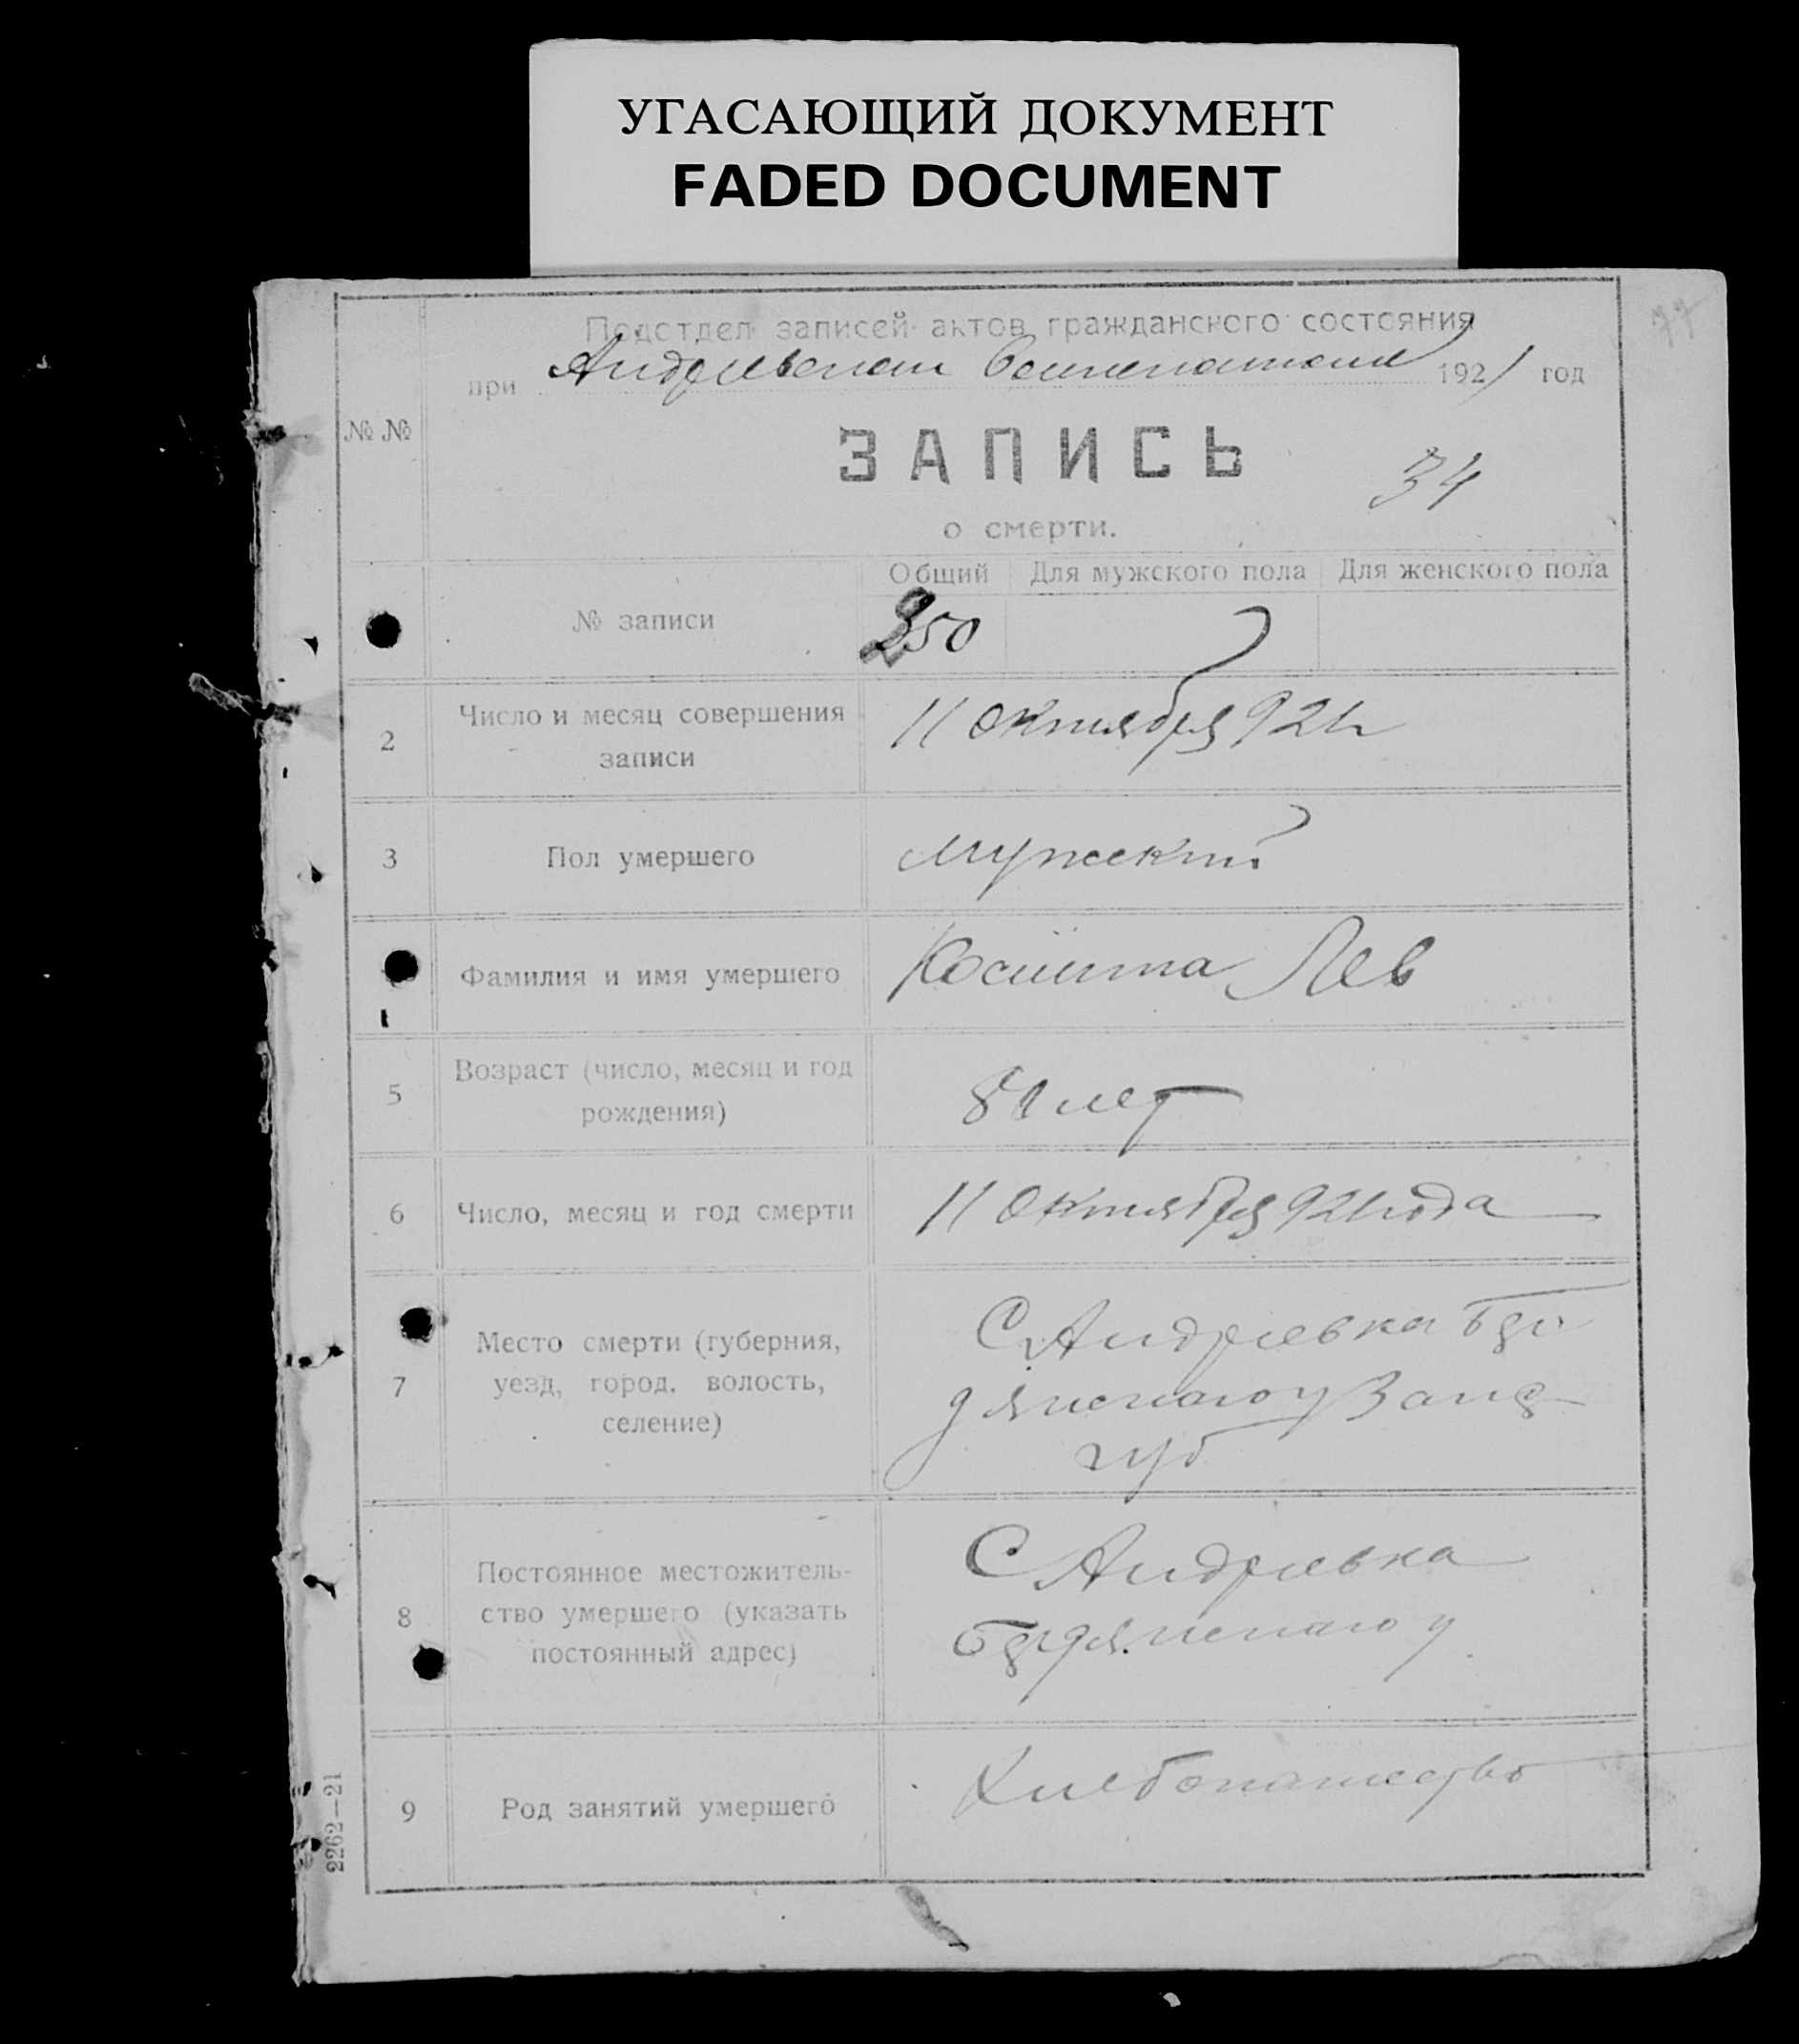 УГАСАЮЩИЙ ДОКУМЕНТ
FADED DOCUMENT
77
Подотдел записей актов гражданского состояния
при Андреевском 1921 год
№ №
ЗАПИСЬ
34
о смерти.
Общий Для мужского пола Для женского пола
№ записи 250
2 Число и месяц совершения записи 11 Октября 921 г
3 Пол умершего мужский
Фамилия и имя умершего Лев
5 Возраст (число, месяц и год рождения) 81 лет
6 Число, месяц и год смерти 11 Октября 921 года
7 Место смерти (губерния, уезд, город, волость, селение) С Андреевка Бер
дянскаго у Запор
губ
8 Постоянное местожитель-
ство умершего (указать постоянный адрес) С Андреевка
Бердянскаго у
9 Род занятий умершего Хлебопашество
2262—21